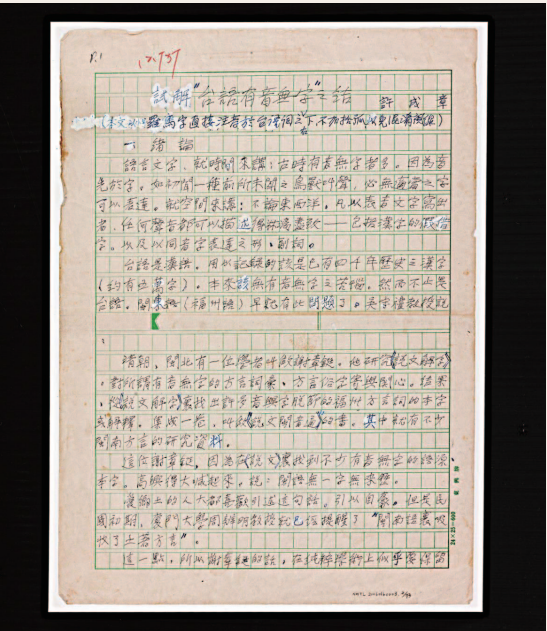 P.1
試解"台語有音無字"之結
許成章
羅馬字直接注音於台語詞之下不加括弧以免
一、緒論
語言文字,就時間來講:古時有音無字者多。因為音
先於字。如初聞一種前所未聞之鳥獸叫聲,必無適當之字
可以表達。就空間來講:不論東西洋,凡以表音文字寫出
者,任何聲音都可以描述得淋漓盡致——包括漢字的假借
字。以及以同音字表達之形、副詞。
台語是漢語。用以記錄的該是已有四千年歷史之漢字
(約有五萬字)。本來該無有音無字之苦惱。然而不止是
台語。閩東話(福州話)早就有此問題了。吳守禮教授說
:
清朝,閩北有一位學者叫做謝章鋌。他研究《說文解字》
,對所謂有音無字的方言詞彙、方言俗字寄與關心。結果
,從《說文解字》裏找出許多音與字脫節的福州方言詞的本字
與解釋。集成一卷,叫做《說文閩音通》的書。其中就有不少
閩南方言的研究資料。
這位謝章鋌,因為在《說文》裏找到不少有音無字的語源
本字。高興得大喊起來。說:閩語無一字無來歷。
廈鄉土的人大都喜歡引述這句話。引以自傲。但是民
國初期,廈門大學周辨明教授就已經提醒了"閩南語裏吸
收了土著方言"。
這一點,所以謝章鋌的話。在純粹學術上似乎要保留
24×25=600